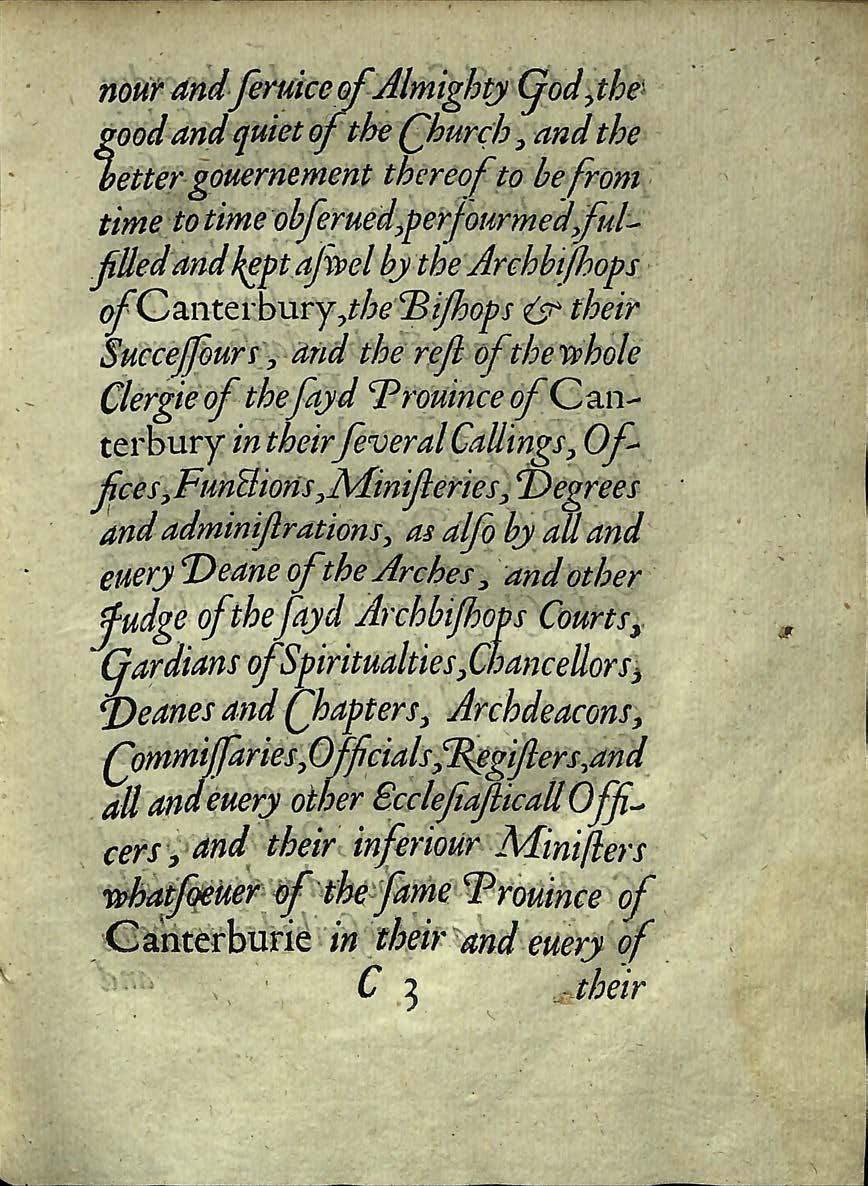 nour and ſeruice of Almighty God, the
good and quiet of the Church, and the
better gouernement thereof to be from
time to time obſerued, perfourmed, ful-
filled and kept aſwel by the Archbiſhops
of Canterbury, the Biſhops & their
Succeſſours, and the reſt of the whole
Clergie of the ſayd Prouince of Can-
terbury in their ſeveral Callings, Of-
fices, Functions, Miniſteries, Degrees
and adminiſtrations, as alſo by all and
euery Deane of the Arches, and other
Judge of the ſayd Archbiſhops Courts,
Gardians of Spiritualties, Chancellors,
Deanes and Chapters, Archdeacons,
Commiſſaries, Officials, Regiſters, and
all and euery other Eccleſiaſticall Offi-
cers, and their inferiour Miniſters
whatſoeuer of the ſame Prouince of
Canterburie in their and euery of
C 3 their